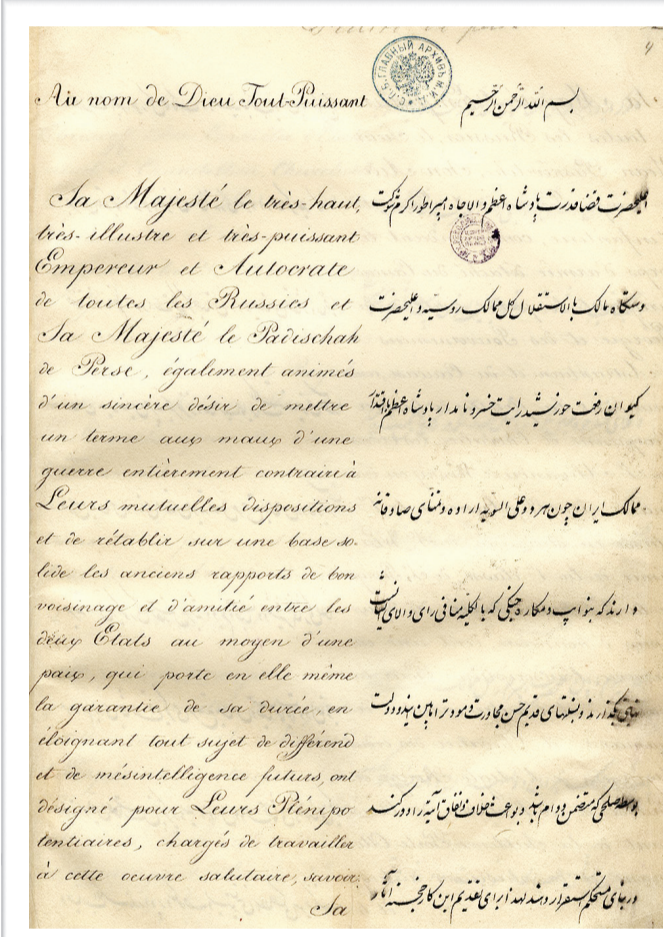 4
Au nom de Dieu Tout-Puissant
Sa Majesté le très-haut,
très-illustre et très-puissant
Empereur et Autocrate
de toutes les Russies et
Sa Majesté le Padischah
de Perse, également animés
d'un sincère désir de mettre
un terme aux maux d'une
guerre entièrement contraire à
Leurs mutuelles dispositions
et de rétablir sur une base so-
lide les anciens rapports de bon
voisinage et d'amitié entre les
deux Etats au moyen d'une
paix, qui porte en elle même
la garantie de sa durée, en
éloignant tout sujet de différend
et de mésintelligence futurs, ont
désigné pour Leurs Plénipo
tentiaires, chargés de travailler
à cette oeuvre salutaire, savoir:
Sa
بسم الله الرحمن الرحیم
اعلیحضرت قضا قدرت پادشاه اعظم والاجاه امپراطور اکرم شوکت
دستگاه مالک بالاستقلال کل ممالک روسیه و اعلیحضرت
کیوان رفعت خورشید رایت خسرو نامدار پادشاه اعظم
ممالک ایران چون هر دو علی السویه اراده و تمنای صادقانه
دارند که بنوایب و مکاره جنگی که بالکلیه منافی رای والای
قدیم حسن مجاورت و مودت را مابین
صلحی که متضمن دوام باشد و بواعث خلاف و نفاق آتیه را دور کند
در بنای مستحکم استقرار دهند لهذا برای تقدیم این کار خجسته آثار
С.П.Б. ГЛАВНЫЙ АРХИВЪ М.И.Д.